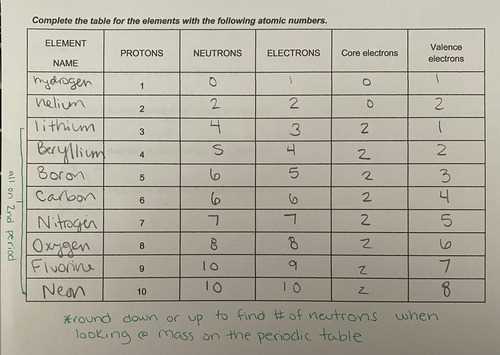 Complete the table for the elements with the following atomic numbers.
ELEMENT NAME PROTONS NEUTRONS ELECTRONS Core electrons Valence electrons
hydrogen 1 0 1 0 1
helium 2 2 2 0 2
lithium 3 4 3 2 1
Beryllium 4 5 4 2 2
Boron 5 6 5 2 3
Carbon 6 6 6 2 4
Nitrogen 7 7 7 2 5
Oxygen 8 8 8 2 6
Fluorine 9 10 9 2 7
Neon 10 10 10 2 8
all on 2nd period
*round down or up to find # of neutrons when
looking @ mass on the periodic table